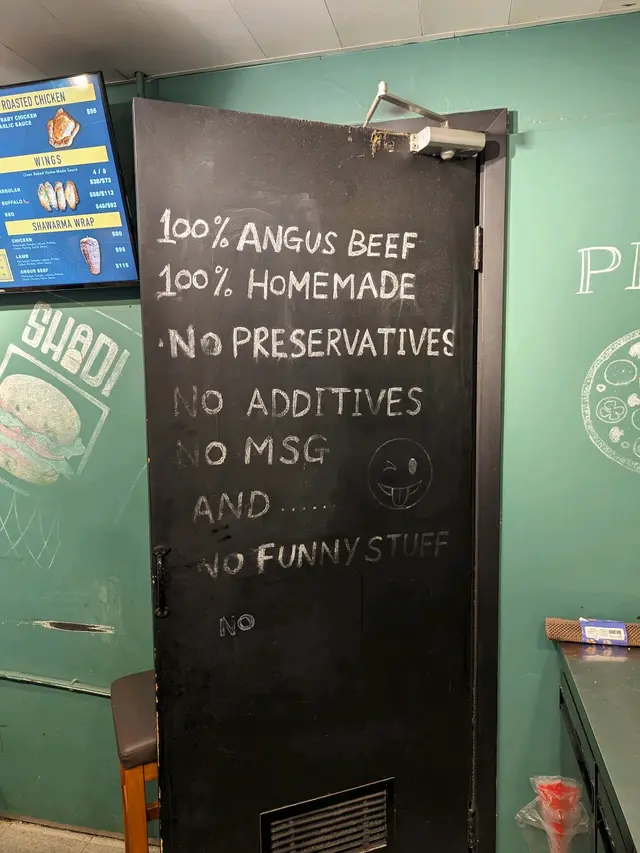 ROASTED CHICKEN
BABY CHICKEN
GARLIC SAUCE
WINGS
Oven Baked Home Made Sauce
4 / 8
REGULAR
BUFFALO
SHAWARMA WRAP
CHICKEN
$80
LAMB
$95
ANGUS BEEF
$115
SHADI
100% ANGUS BEEF
100% HOMEMADE
·NO PRESERVATIVES
NO ADDITIVES
NO MSG
AND ......
NO FUNNY STUFF
NO